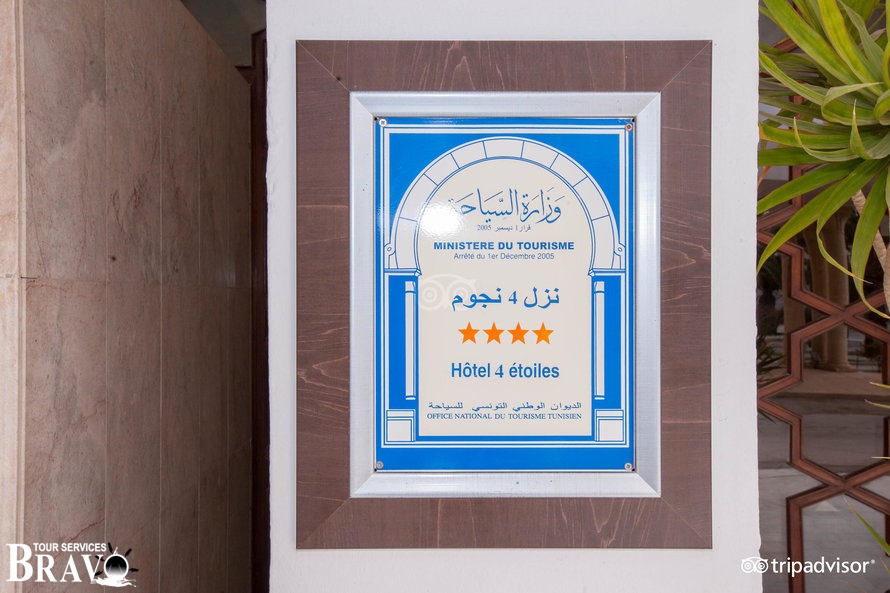 وَزَارَةُ السِّيَاحَة
قرار 1 ديسمبر 2005
MINISTERE DU TOURISME
Arrêté du 1er Décembre 2005
نزل 4 نجوم
Hôtel 4 étoiles
الديوان الوطني التونسي للسياحة
OFFICE NATIONAL DU TOURISME TUNISIEN
TOUR SERVICES
BRAVO
tripadvisor